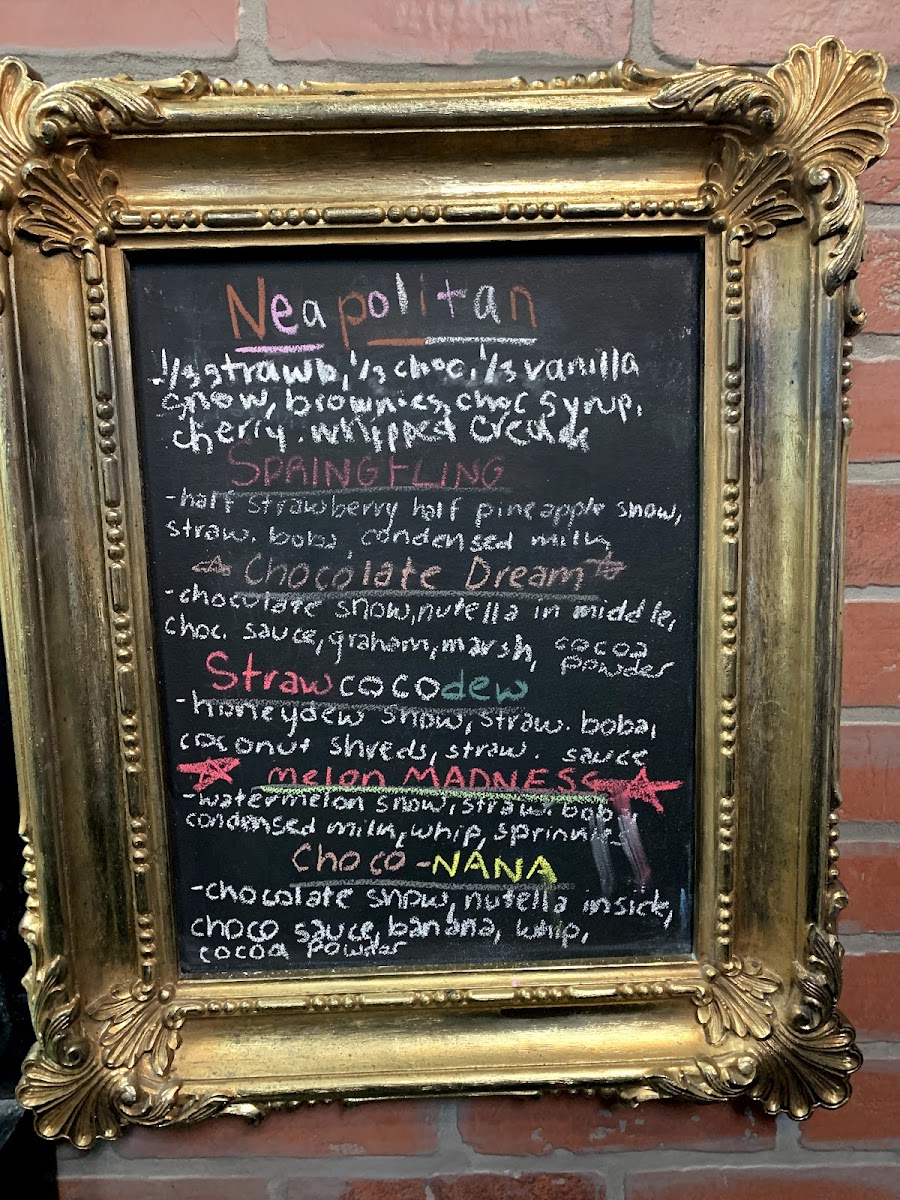 Neapolitan
1/3 strawb, 1/3 choc, 1/3 vanilla
snow, brownies, choc syrup,
cherry. whipped cream
SPRING FLING
-half strawberry half pineapple snow,
straw. boba, condensed milk
Chocolate Dream
-chocolate snow, nutella in middle,
choc. sauce, graham, marsh, cocoa
powder
Strawcocodew
-honeydew snow, straw. boba,
coconut shreds, straw. sauce
melon MADNESS
-watermelon snow, straw. boba,
condensed milk, whip, sprinkles
Choco-NANA
-chocolate snow, nutella inside,
choco sauce, banana, whip,
cocoa powder